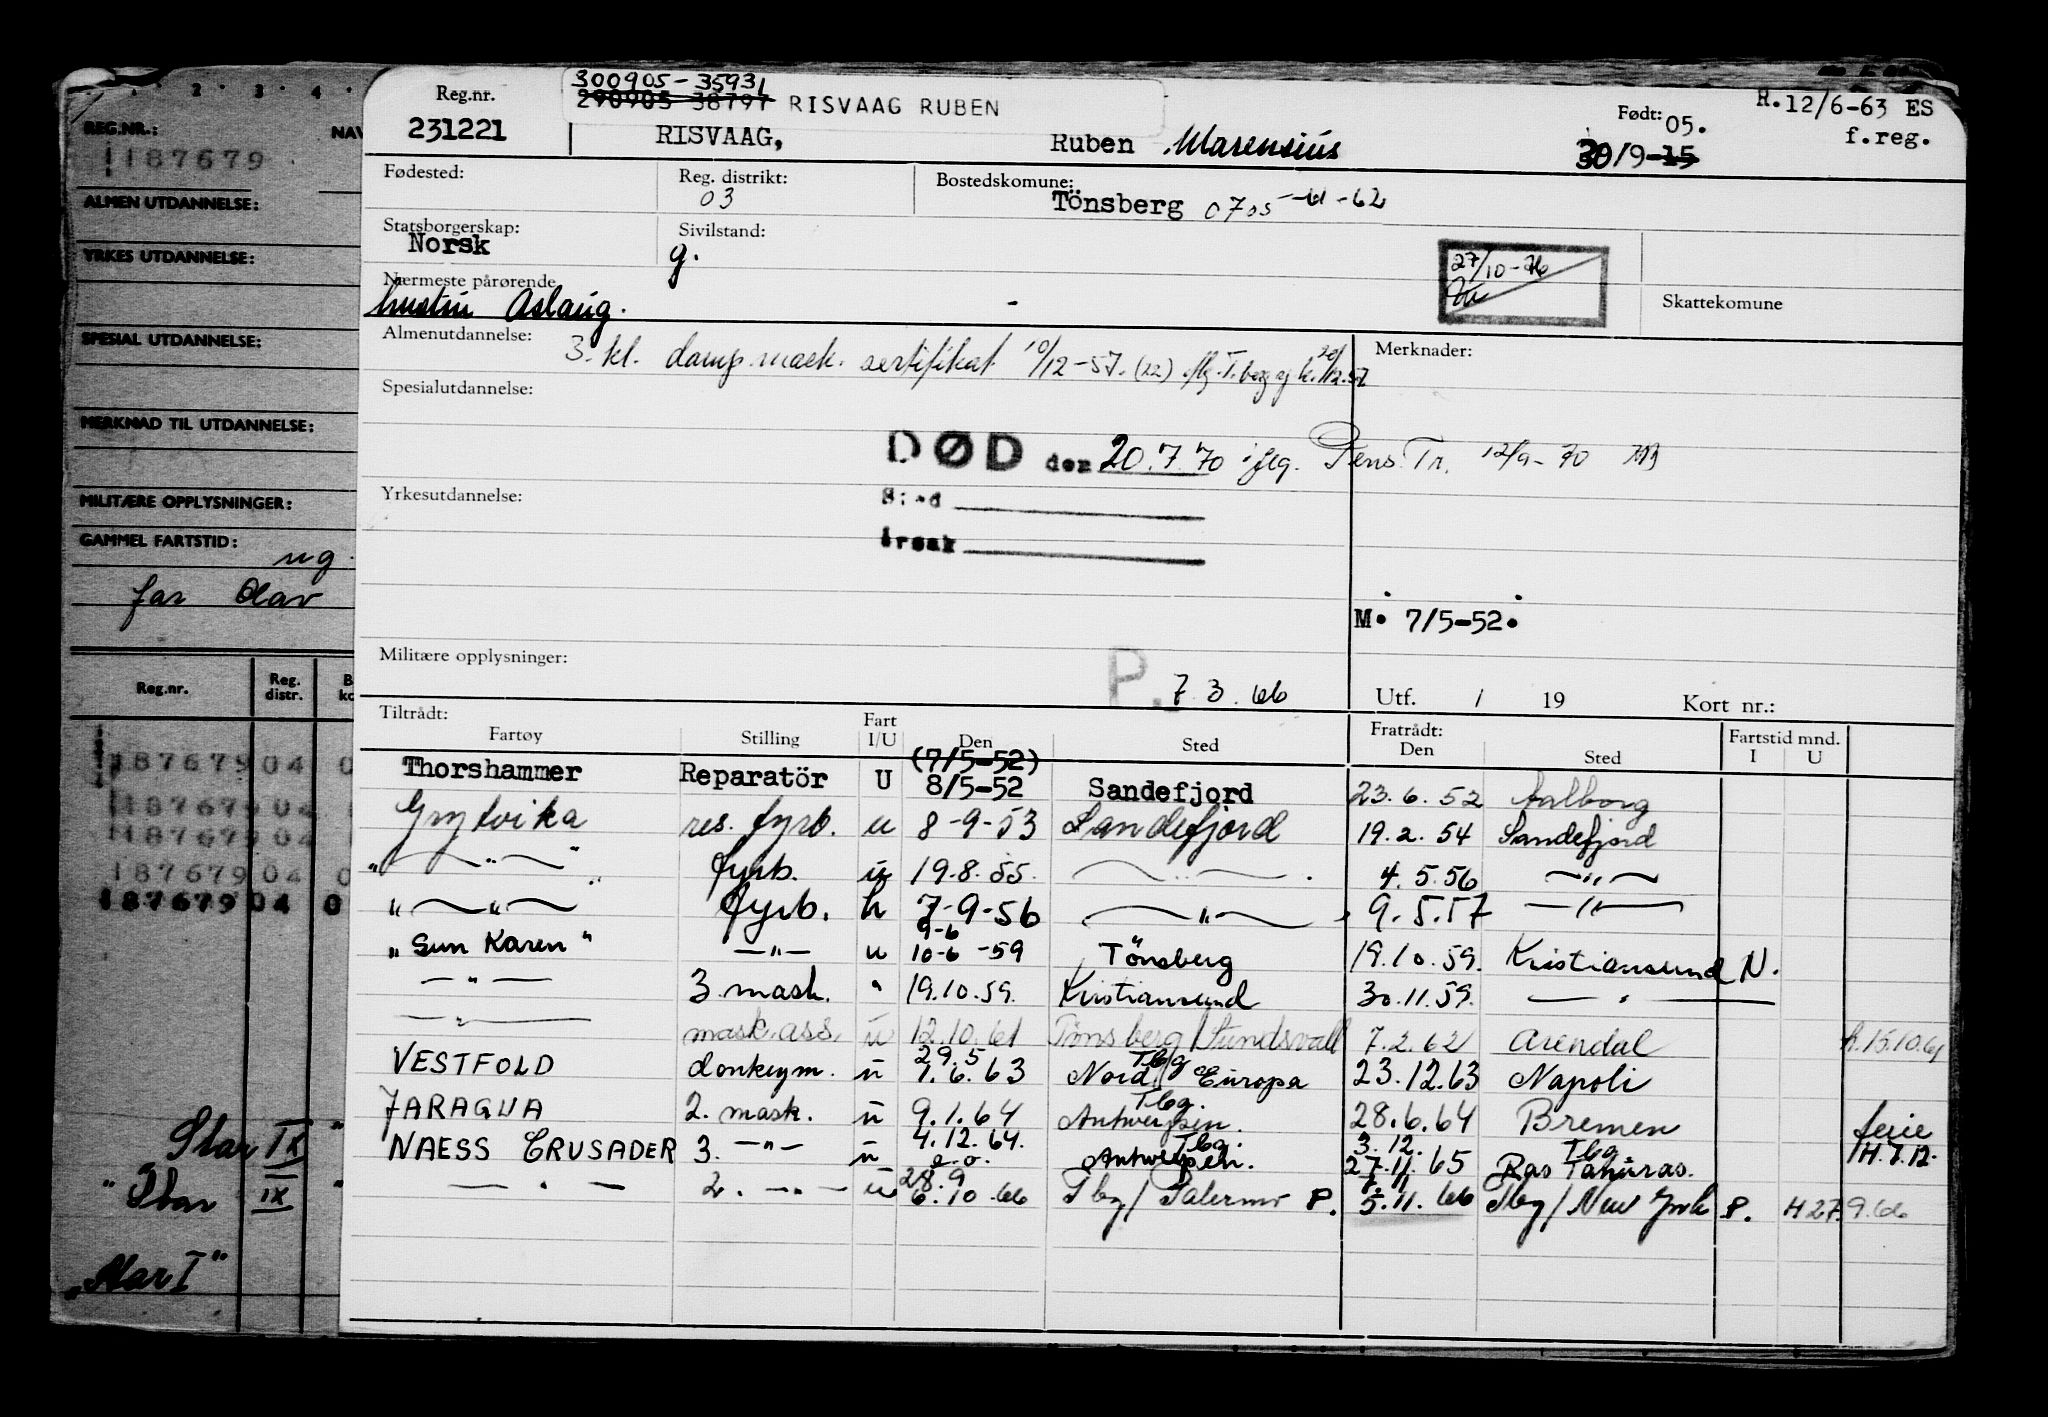 300905-35931
290905 38797 RISVAAG RUBEN
Reg.nr.
231221
RISVAAG, Ruben Marensius
Født: 05.
30/9-15
R.12/6-63 ES
f.reg.
Fødested:
Reg. distrikt:
03
Bostedskomune:
Tönsberg 0705 -62
Statsborgerskap:
Norsk
Sivilstand:
g.
27/10-76
Skattekomune
Nærmeste pårørende
hustru Aslaug.
Almenutdannelse:
3. kl. damp. mask. sertifikat 10/12-57. (22)
Merknader:
Spesialutdannelse:
DØD den 20.7.70 iflg. Pens. Tr. 12/9-70
Sted
årsak
Yrkesutdannelse:
M. 7/5-52.
Militære opplysninger:
P. 7.3.66
Utf. / 19 Kort nr.:
Tiltrådt:
Fartøy Stilling Fart I/U Den Sted
Fratrådt:
Den Sted
Fartstid mnd.
I U
Thorshammer Reparatör U (7/5-52) 8/5-52 Sandefjord 23.6.52 Aalborg
Grytvika res. fyrb. u 8-9-53 Sandefjord 19.2.54 Sandefjord
" — " — " fyrb. u 19.8.55. — " — 4.5.56 — " —
" — " — fyrb. h 7-9-56 — " — 9.5.57 — " —
" Sun Karen " — " — u 9-6 10-6-59 Tönsberg 19.10.59. Kristiansund N.
— " — 3 mask. " 19.10.59. Kristiansund 30.11.59. — " —
— " — mask. ass. u 12.10.61 Tönsberg/Sundsvall 7.2.62 Arendal h.15.10.61
VESTFOLD donkeym. u 29.5 1.6.63 Tbg/ Nord Europa 23.12.63 Napoli
JARAGUA 2. mask. u 9.1.64 Tbg. Antwerpen. 28.6.64 Bremen ferie
NAESS CRUSADER 3. — " — u 4.12.64. Tbg. Antwerpen. 3.12. 27.11.65 Tbg Ras Tanuras. H.7.12.
— " — 2. — " — u 28.9 6.10.66 Tbg/Palermo P. 5.11.66 Tbg/New York P. H 27.9.66
2 3 4
REG.NR.:
187679
ALMEN UTDANNELSE:
YRKES UTDANNELSE:
SPESIAL UTDANNELSE:
MERKNAD TIL UTDANNELSE:
MILITÆRE OPPLYSNINGER:
GAMMEL FARTSTID:
ug.
far Olav
Reg.nr. Reg. distr.
187679 04 0
187679 04
187679 04
187679 04 0
187679 04 0
Star IX "
" Star IX "
"Star I"